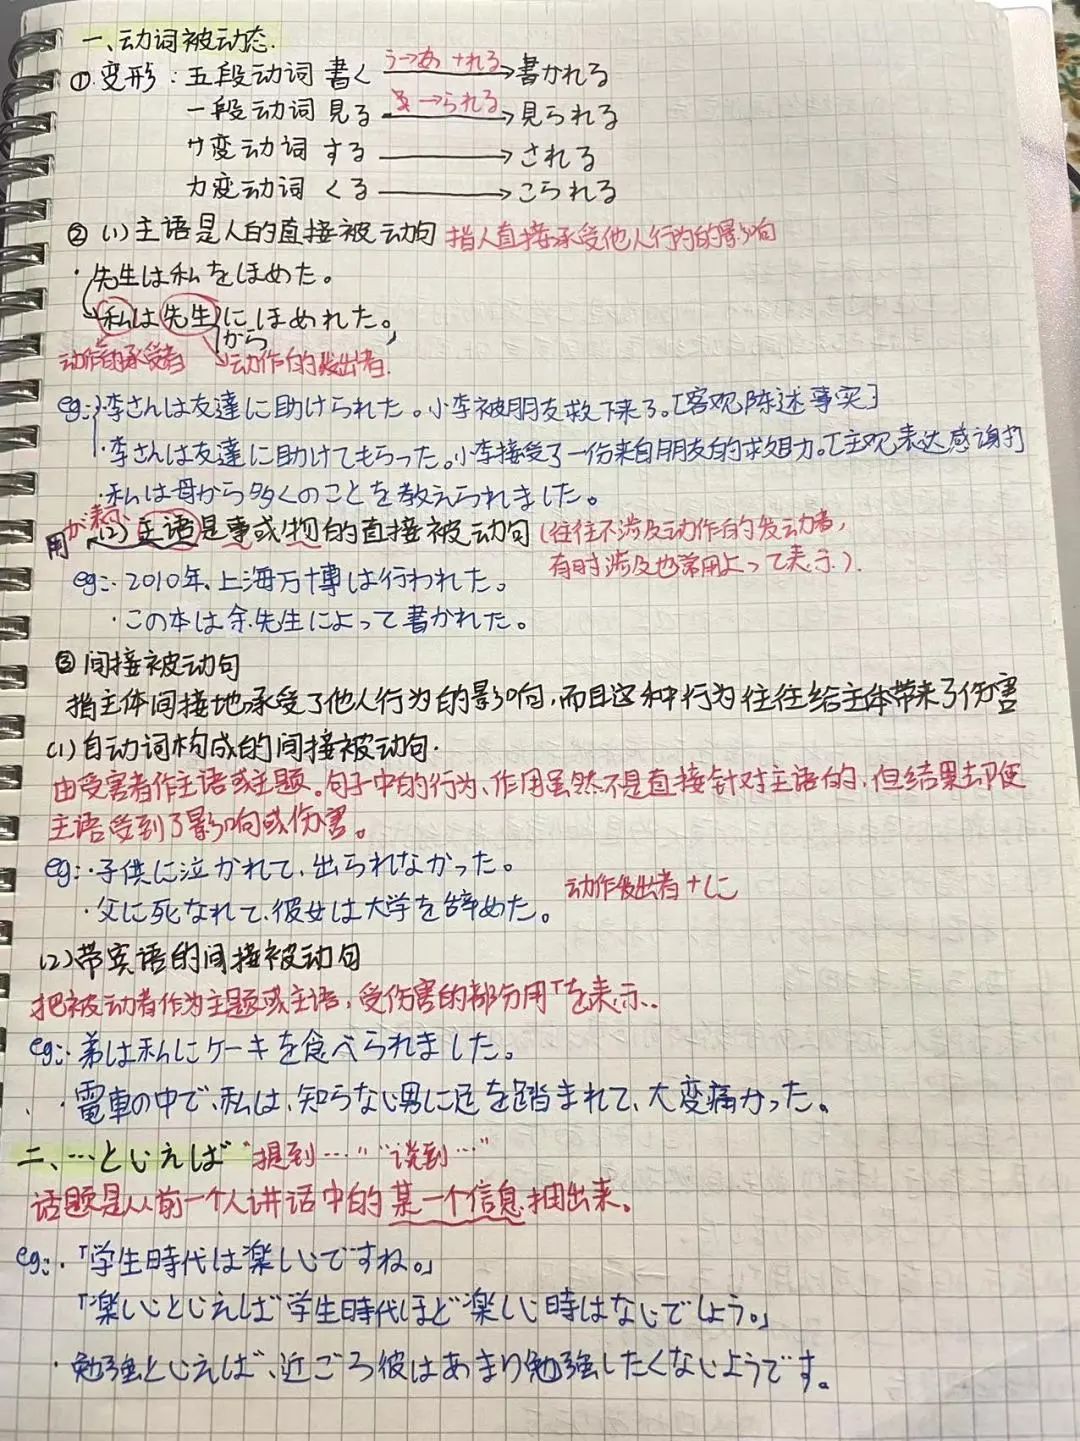 一、动词被动态.
①.变形：五段动词 書く う→あ+れる→書かれる
一段动词 見る る→られる→見られる
サ变动词 する → される
カ变动词 くる → こられる
②(1)主语是人的直接被动句 指人直接承受他人行为的影响
・先生は私をほめた。
私は先生にほめれた。
から
动作的承受者 动作的发出者.
eg:・李さんは友達に助けられた。小李被朋友救下来了。[客观陈述事实]
・李さんは友達に助けてもらった。小李接受了一份来自朋友的求助力。[主观表达感谢]
・私は母から多くのことを教えられました。
用が表(2)主语是事或物的直接被动句(往往不涉及动作的发动者,
有时涉及也常用よって表示).
eg:・2010年、上海万博は行われた。
・この本は余先生によって書かれた。
③间接被动句
指主体间接地承受了他人行为的影响,而且这种行为往往给主体带来了伤害
(1)自动词构成的间接被动句.
由受害者作主语或主题。句子中的行为、作用虽然不是直接针对主语的,但结果却使
主语受到了影响或伤害。
eg:・子供に泣かれて、出られなかった。
动作发出者+に
・父に死なれて、彼女は大学を辞めた。
(2)带宾语的间接被动句
把被动者作为主题或主语,受伤害的部分用「を表示.
eg:・弟は私にケーキを食べられました。
・電車の中で、私は、知らない男に足を踏まれて、大変痛かった。
二、…といえば "提到…" "谈到…"
话题是从前一个人讲话中的某一个信息抽出来。
eg:・「学生時代は楽しいですね。」
「楽しいといえば学生時代ほど楽しい時はないでしょう。」
・勉強といえば、近ごろ彼はあまり勉強したくないようです。